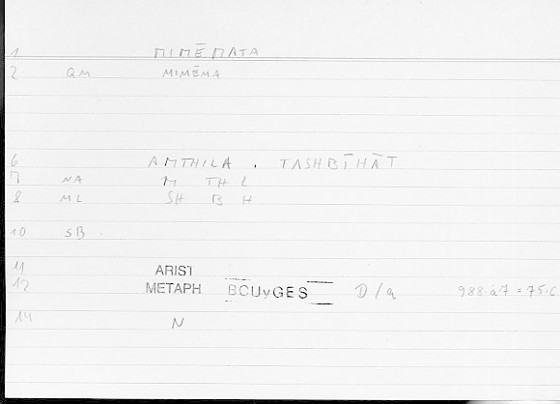 1 MIMĒMATA
2 QM MIMĒMA
6 AMTHILA . TASHBĪHĀT
7 NA M TH L
8 ML SH B H
10 SB
11 ARIST
12 METAPH BOUyGES D/q 988.a7 = 75.6
14 N